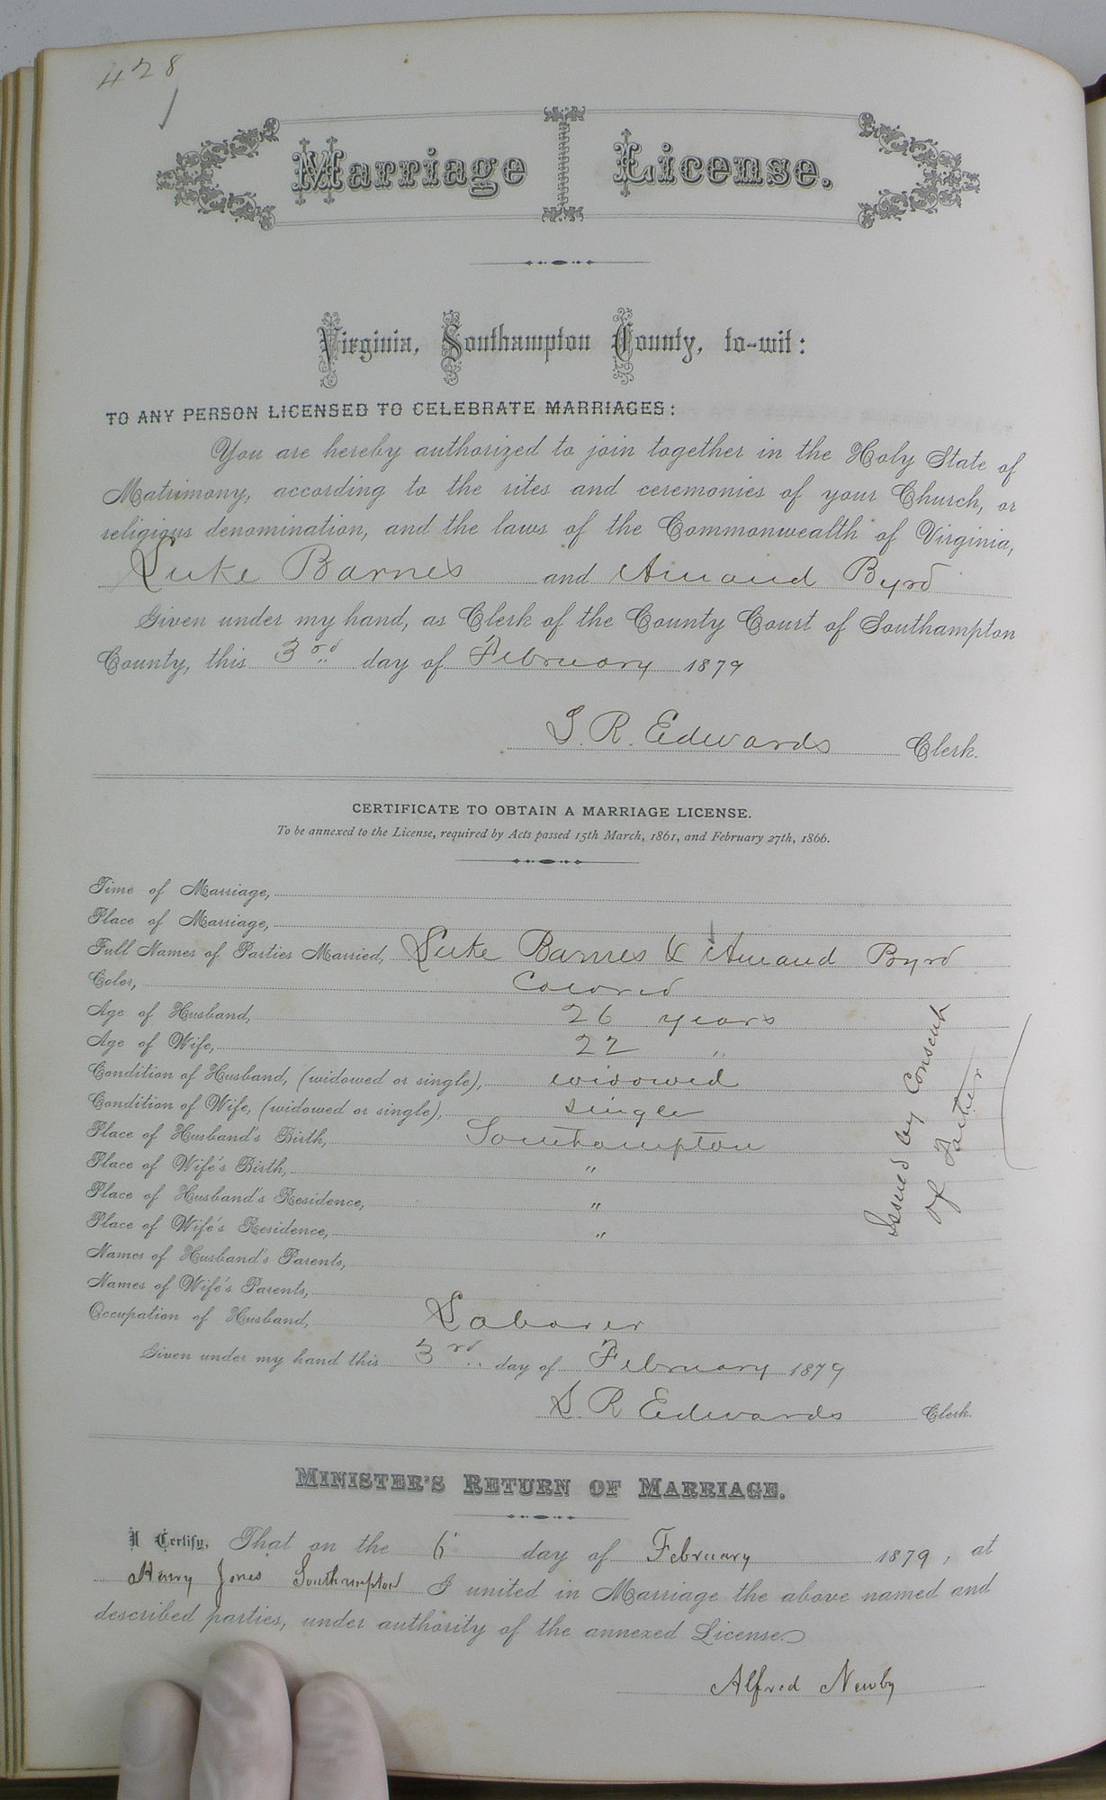 428
Marriage License.
Virginia, Southampton County, to-wit:
TO ANY PERSON LICENSED TO CELEBRATE MARRIAGES:
You are hereby authorized to join together in the Holy State of
Matrimony, according to the rites and ceremonies of your Church, or
religious denomination, and the laws of the Commonwealth of Virginia,
Luke Barnes and Amand Byrd
Given under my hand, as Clerk of the County Court of Southampton
County, this 3rd day of February 1879
L. R. Edwards Clerk.
CERTIFICATE TO OBTAIN A MARRIAGE LICENSE.
To be annexed to the License, required by Acts passed 15th March, 1861, and February 27th, 1866.
Time of Marriage,
Place of Marriage,
Full Names of Parties Married, Luke Barnes & Amand Byrd
Color, Colored
Age of Husband, 26 years
Age of Wife, 22 "
Condition of Husband, (widowed or single), widowed
Condition of Wife, (widowed or single), single
Place of Husband's Birth, Southampton
Place of Wife's Birth, "
Place of Husband's Residence, "
Place of Wife's Residence, "
Names of Husband's Parents,
Names of Wife's Parents,
Occupation of Husband, Laborer
Issued by Consent
of Father
Given under my hand this 3rd day of February 1879
L. R. Edwards Clerk.
MINISTER'S RETURN OF MARRIAGE.
I Certify, That on the 6 day of February 1879, at
Henry Jones Southampton I united in Marriage the above named and
described parties, under authority of the annexed License.
Alfred Newby